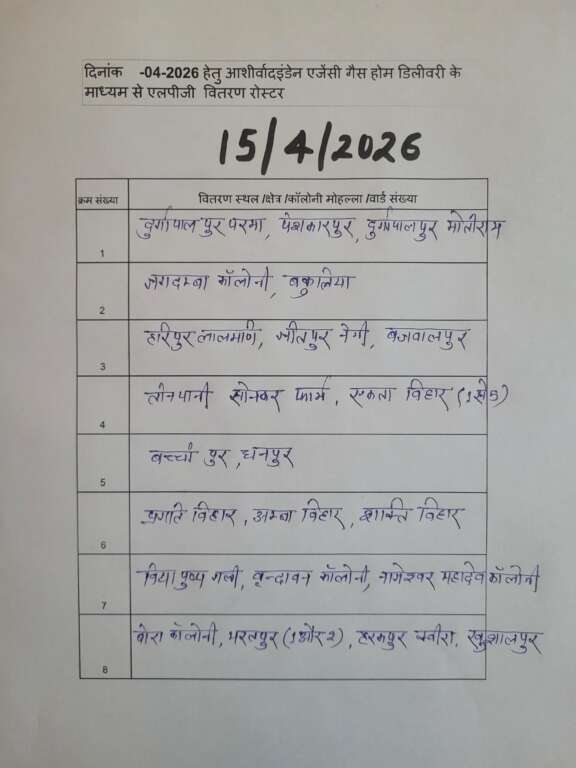 दिनांक -04-2026 हेतु आशीर्वादइंडेन एजेंसी गैस होम डिलीवरी के
माध्यम से एलपीजी वितरण रोस्टर
15/4/2026
क्रम संख्या वितरण स्थल /क्षेत्र /कॉलोनी मोहल्ला /वार्ड संख्या
1 दुर्गापाल पुर परमा, पेशकारपुर, दुर्गापालपुर मोतीराम
2 जगदम्बा कॉलोनी, बकुलिया
3 हरिपुर लालमणि, जीतपुर नेगी, बजवालपुर
4 तीनपानी सोनकर फार्म, एकता विहार (1 से 5)
5 बच्ची पुर, धनपुर
6 प्रगति विहार, अम्बा विहार, शक्ति विहार
7 पुष्प गली, वृन्दावन कॉलोनी, नागेश्वर महादेव कॉलोनी
8 बोरा कॉलोनी, भरतपुर (1 और 2), खुशालपुर